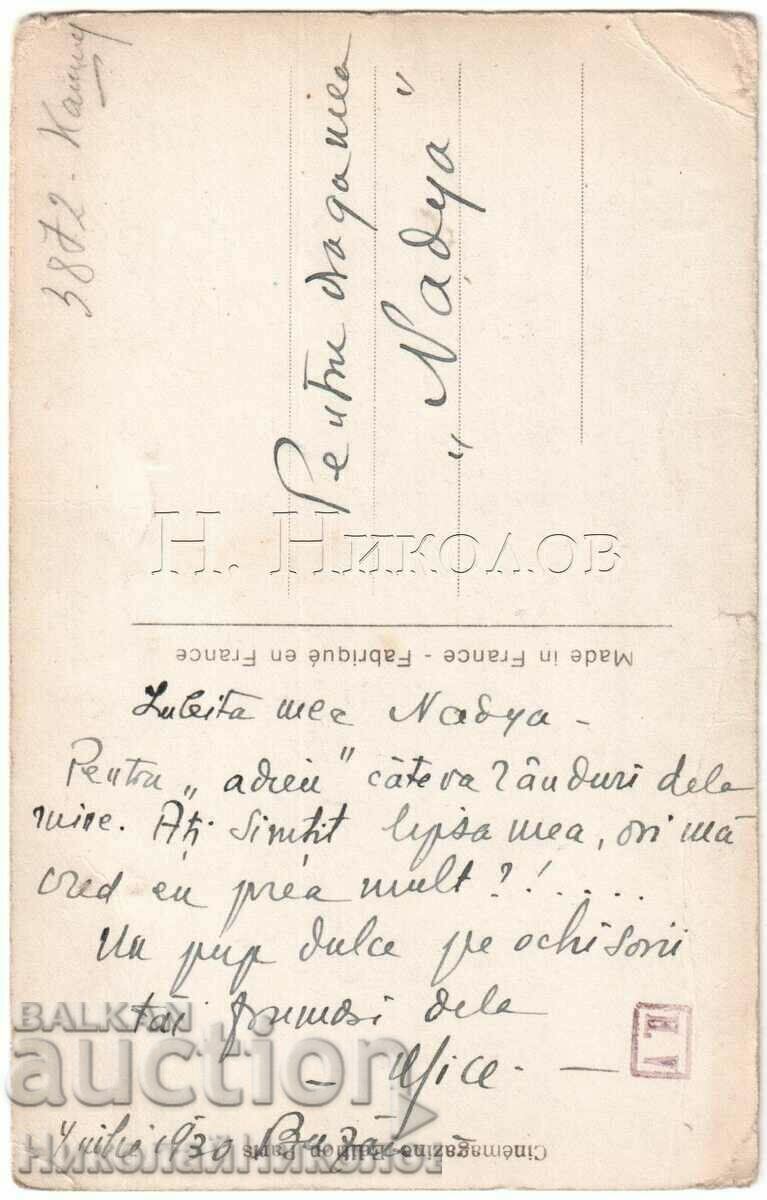 3872
Pentru draga mea
„Nadya”
Н. Николов
Made in France - Fabriqué en France
Iubita mea Nadya -
Pentru „adieu” câteva rânduri dela
mine. Ați simțit lipsa mea, ori mă
cred eu prea mult?!....
Un pup dulce pe ochisorii
tăi frumosi dela
- Mice. -
4 iulie 1930 Buzău
Cinémagazine-Edition, Paris
BALKAN
auction
Николай Николов